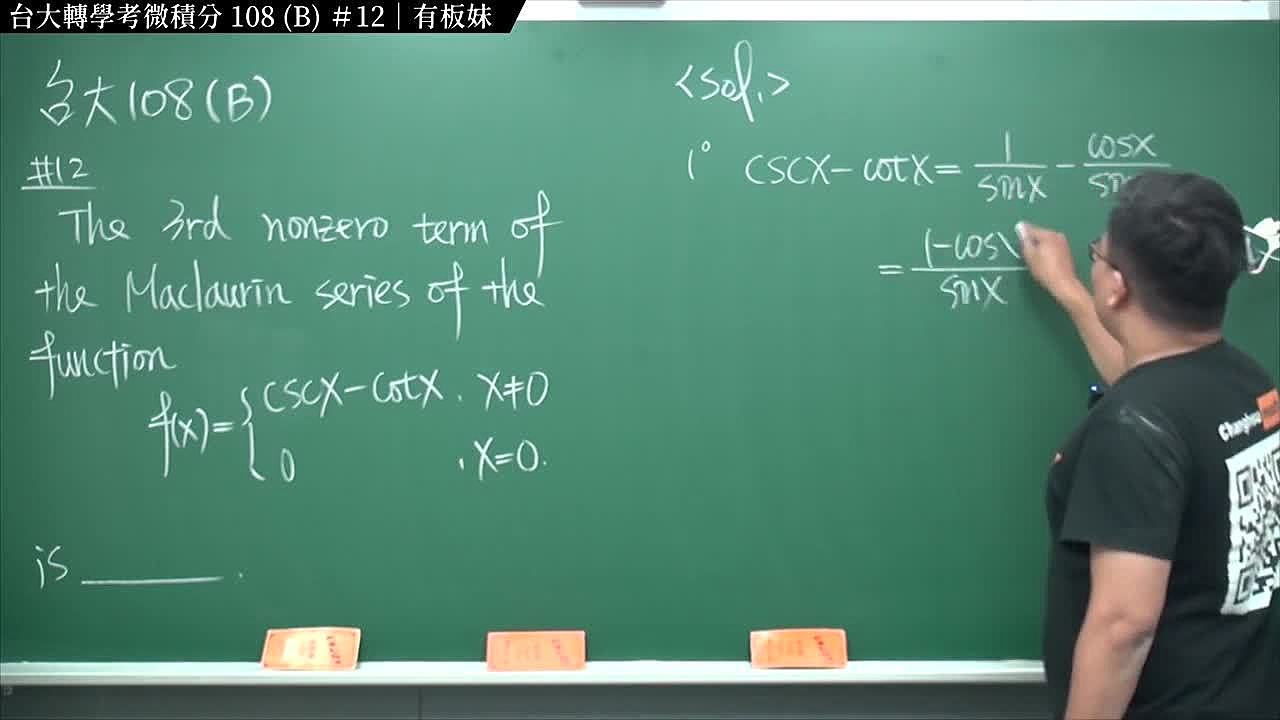 台大轉學考微積分 108 (B) #12｜有板妹
台大108(B)
#12
The 3rd nonzero term of
the Maclaurin series of the
function
f(x)={ cscx-cotx, x≠0
0, x=0.
is ______.
<sol.>
1° cscx-cotx= 1/sinx - cosx/
= 1-cos/sinx